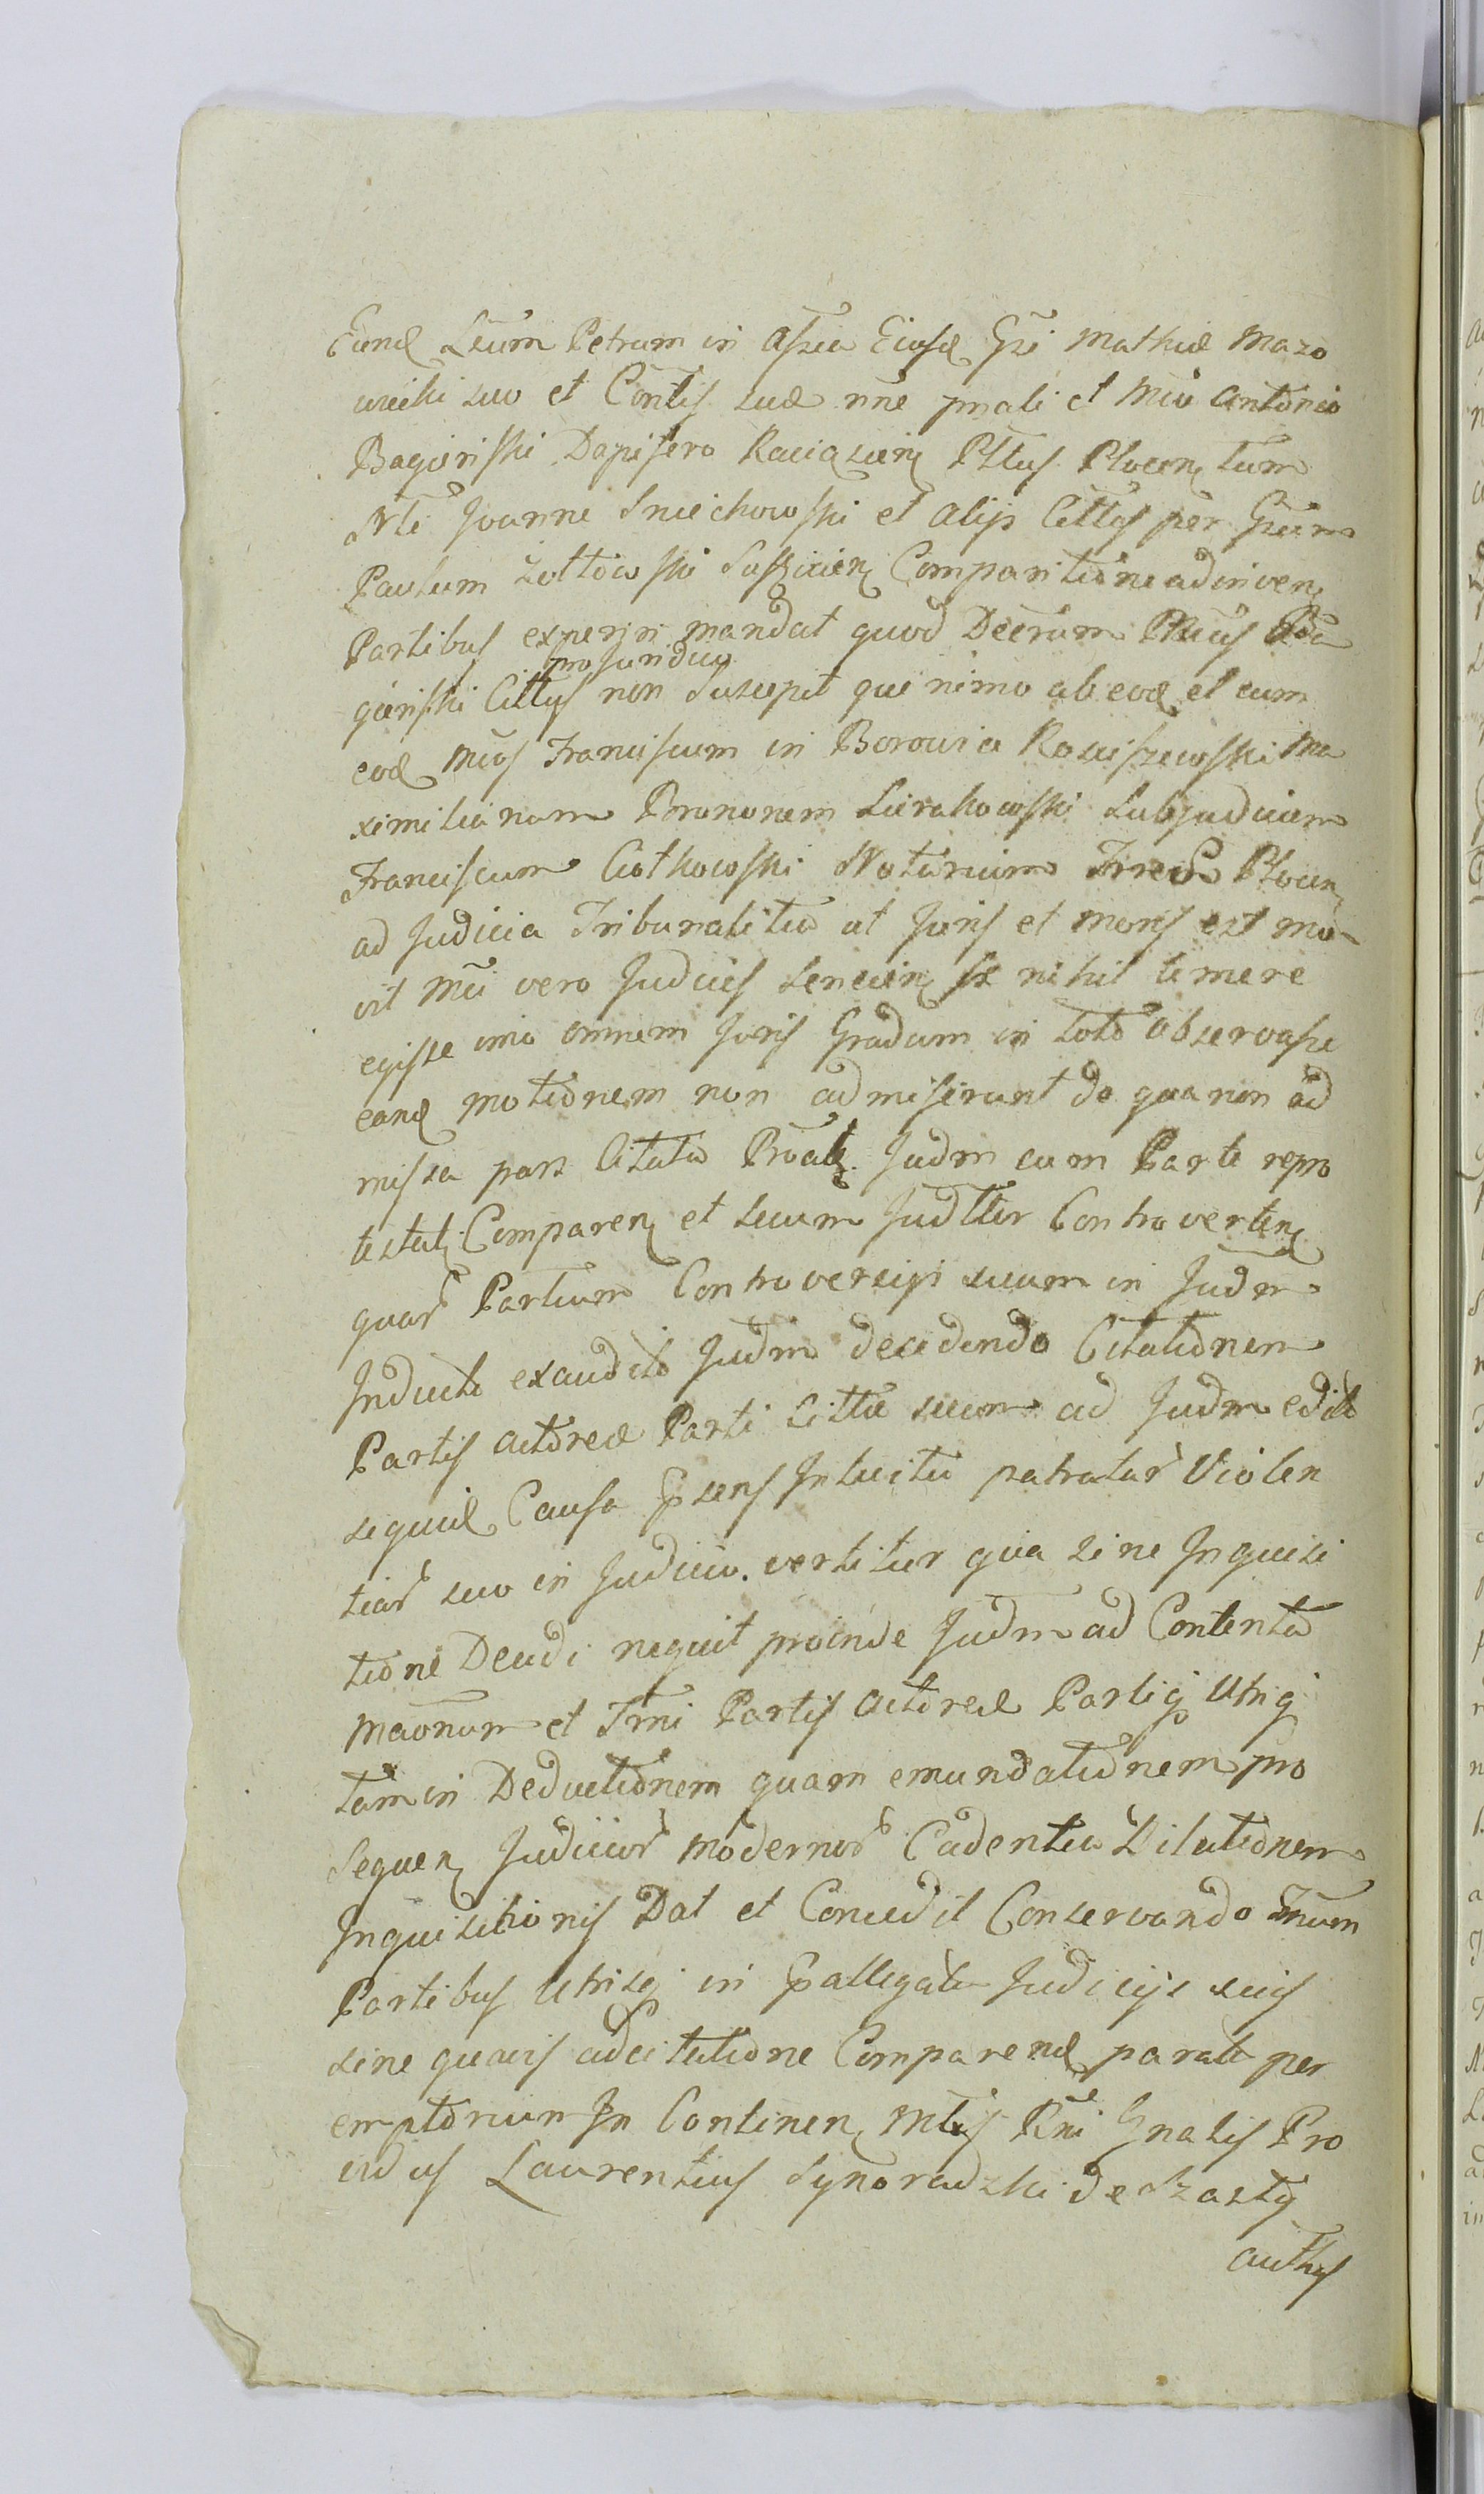 Eund Leum Petrum in Aszia Eiusd Gsi Mathiæ Mazo
wiecki suo et Contis suæ nne pnali et Mco Antonio
Bagieński Dapifero Raciązien Pttus Plocen tum
Nli Joanne Smiechowski et alijs Cittis per Gsum
Paulum Żołtowski Sufficien Comparitione adinven
Partibus experiri mandat quod Decrum Mcus Ba
pro Juridico
gieński Cittus non Suscepit quinimo ab eod et cum
eod Mcos Franciscum in Borowia Rosciszewski Ma
ximilianum Brunonem Sierakowski Subjudicem
Franciscum Ciotkowski Notarium Plocen
ad Judicia Tribunalitia ut Juris et moris est mo-
vit Mci vero Judices se nihil temere
egisse imo omnem Juris Gradum in toto observasse
eand motionem non admiserunt de qua non ad
missa pars Citata Judm cum Parte repro
testat Comparen et secum Judttr Controverten
quar Partium Controversijs suum in Judm
Inducto exaudito Judm decidendo Citationem
Partis actoreæ Parti Cittæ suum ad Judm edit
siquid Causa Psens Intuitu patratar Violen
tiar suo in Judicio vertitur quia sine Inquisi
tione Decidi nequit proinde Judm ad Contenta
Maonum et Trni Partis actoreæ Partiq Utriq
tam in Deductionem quam emundationem pro
Sequen Judicior modernor Cadentia Dilationem
Inquisitionis Dat et Concedit Conservando Trnum
Partibus Utrisq in Pallegatis Judicijs suis
sine quavis adcitatione Comparend parate per
emptorium In Continen Mtis Rni Gnalis Pro
vidus Laurentius Synoradzki de Szasty
authus